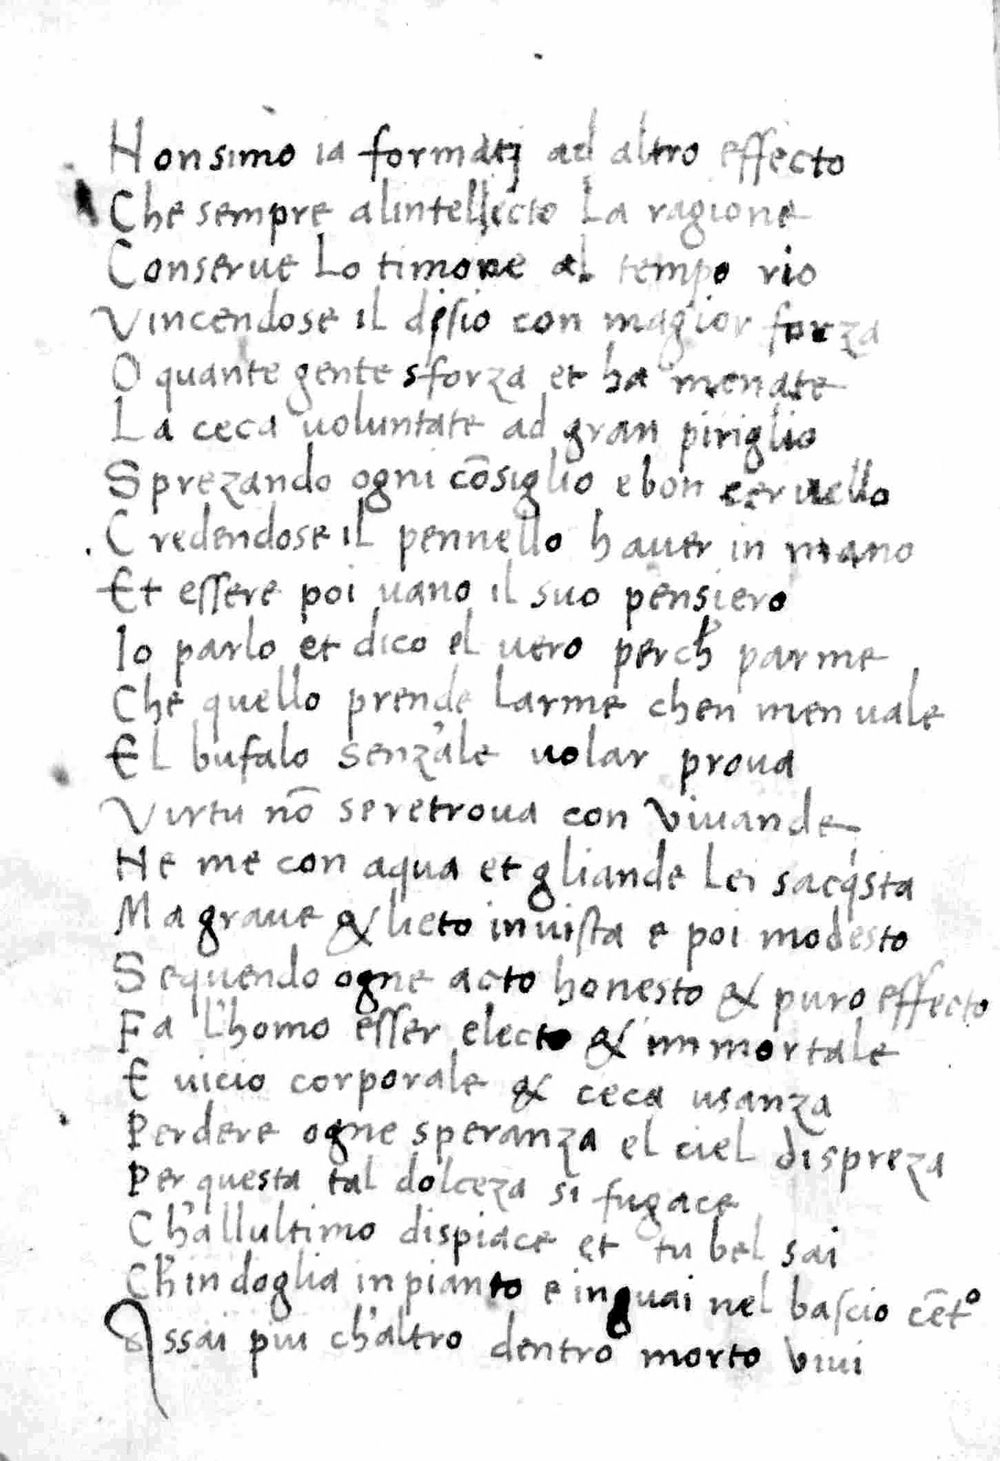 Nonsimo ia formatj ad altro effecto
Che sempre alintellecto La ragione
Conserue Lo timore al tempo rio
Vincendose il disio con magior forza
O quante gente sforza et ha menate
La ceca uoluntate ad gran piriglio
Sprezando ogni cōsiglio e bon ceruello
Credendose il pennello hauer in mano
Et essere poi uano il suo pensiero
Io parlo et dico el uero perch parme
Che quello prende Larme chen men uale
El bufalo senz'ale uolar proua
Virtu nō se retroua con viuande
Ne me con aqua et gliande Lei sacq'sta
Ma graue & lieto in uista e poi modesto
Sequendo ogne acto honesto & puro effecto
Fa l'homo esser electo & immortale
E uicio corporale & ceca usanza
Perdere ogne speranza el ciel dispreza
Per questa tal dolceza si fugace
Ch'allultimo dispiace et tu bel sai
Ch'in doglia in pianto e in guai nel bascio cēto
Assai piu ch'altro dentro morto viui